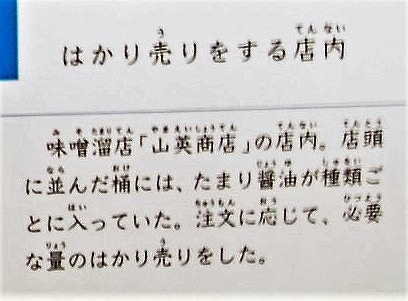 はかり売りをする店内
味噌溜店「山英商店」の店内。店頭
に並んだ桶には、たまり醤油が種類ご
とに入っていた。注文に応じて、必要
な量のはかり売りをした。